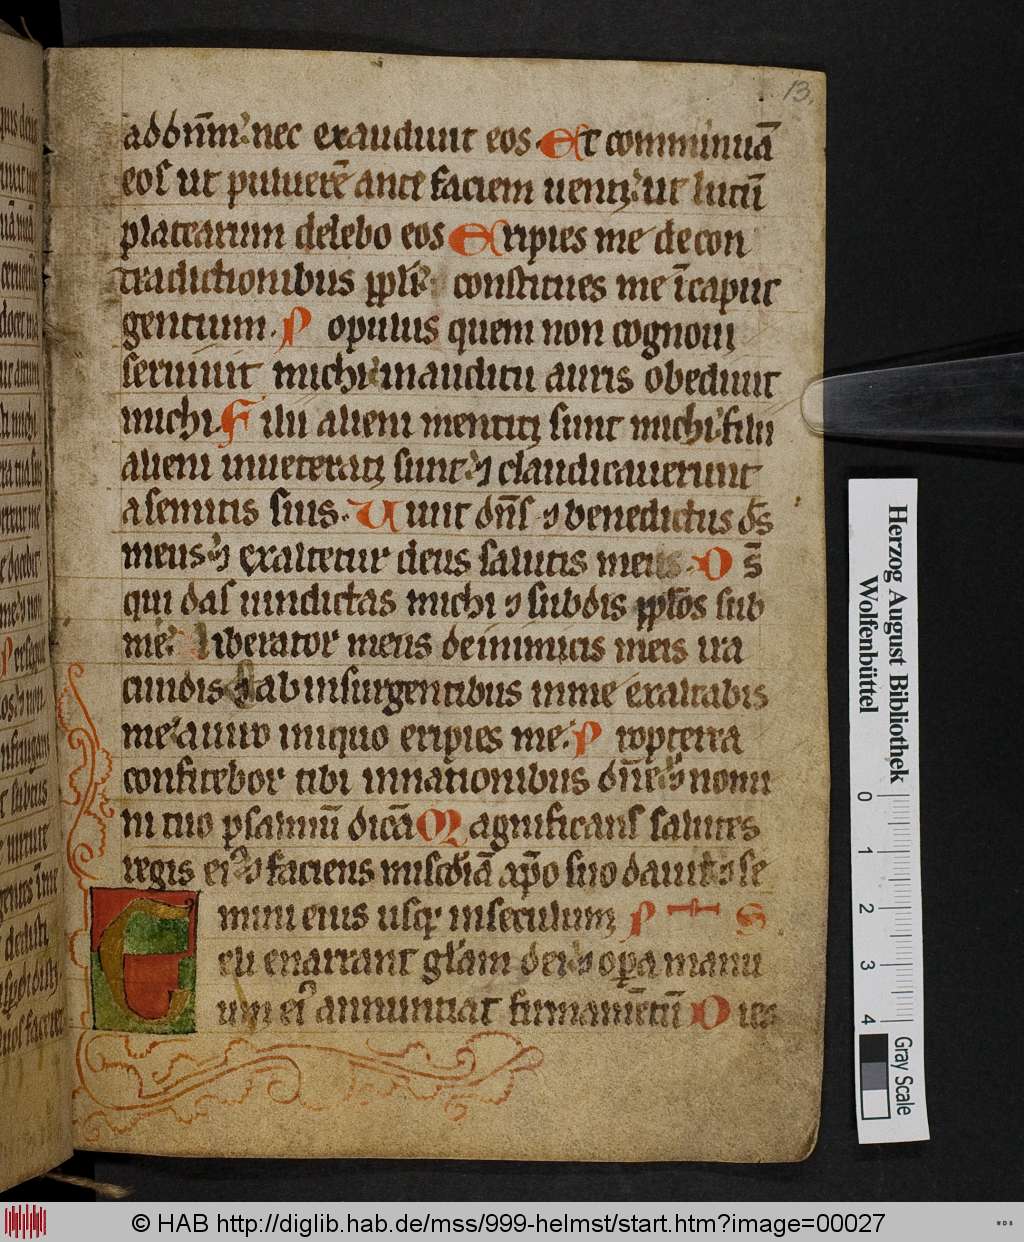 13.
ad dñm nec exaudiuit eos. Et comminuā
eos ut puluerē ante faciem uenti ut lutū
platearum delebo eos Eripies me de con
tradictionibus ppli constitues me ī caput
gentium. Populus quem non cognoui
seruiuit michi in auditu auris obediuit
michi. Filii alieni mentiti sunt michi filii
alieni inueterati sunt ⁊ claudicauerunt
a semitis suis. Uiuit dñs ⁊ benedictus ds̄
meus ⁊ exaltetur deus salutis meus. Ds̄
qui das uindictas michi ⁊ subdis pplos sub
me liberator meus de inimicis meis ira
cundis ⁊ ab insurgentibus in me exaltabis
me a uiro iniquo eripies me. Propterea
confitebor tibi in nationibus dñe ⁊ nomi
ni tuo psalmū dicā Magnificans salutes
regis eiꝰ ⁊ faciens miscdiā xp̄o suo dauit ⁊ se
mini eius usq in seculum PS
Celi enarrant glam dei ⁊ opa manu
um eiꝰ annuntiat firmamētū Dies
Herzog August Bibliothek
Wolfenbüttel
0 1 2 3 4
Gray Scale
© HAB http://diglib.hab.de/mss/999-helmst/start.htm?image=00027